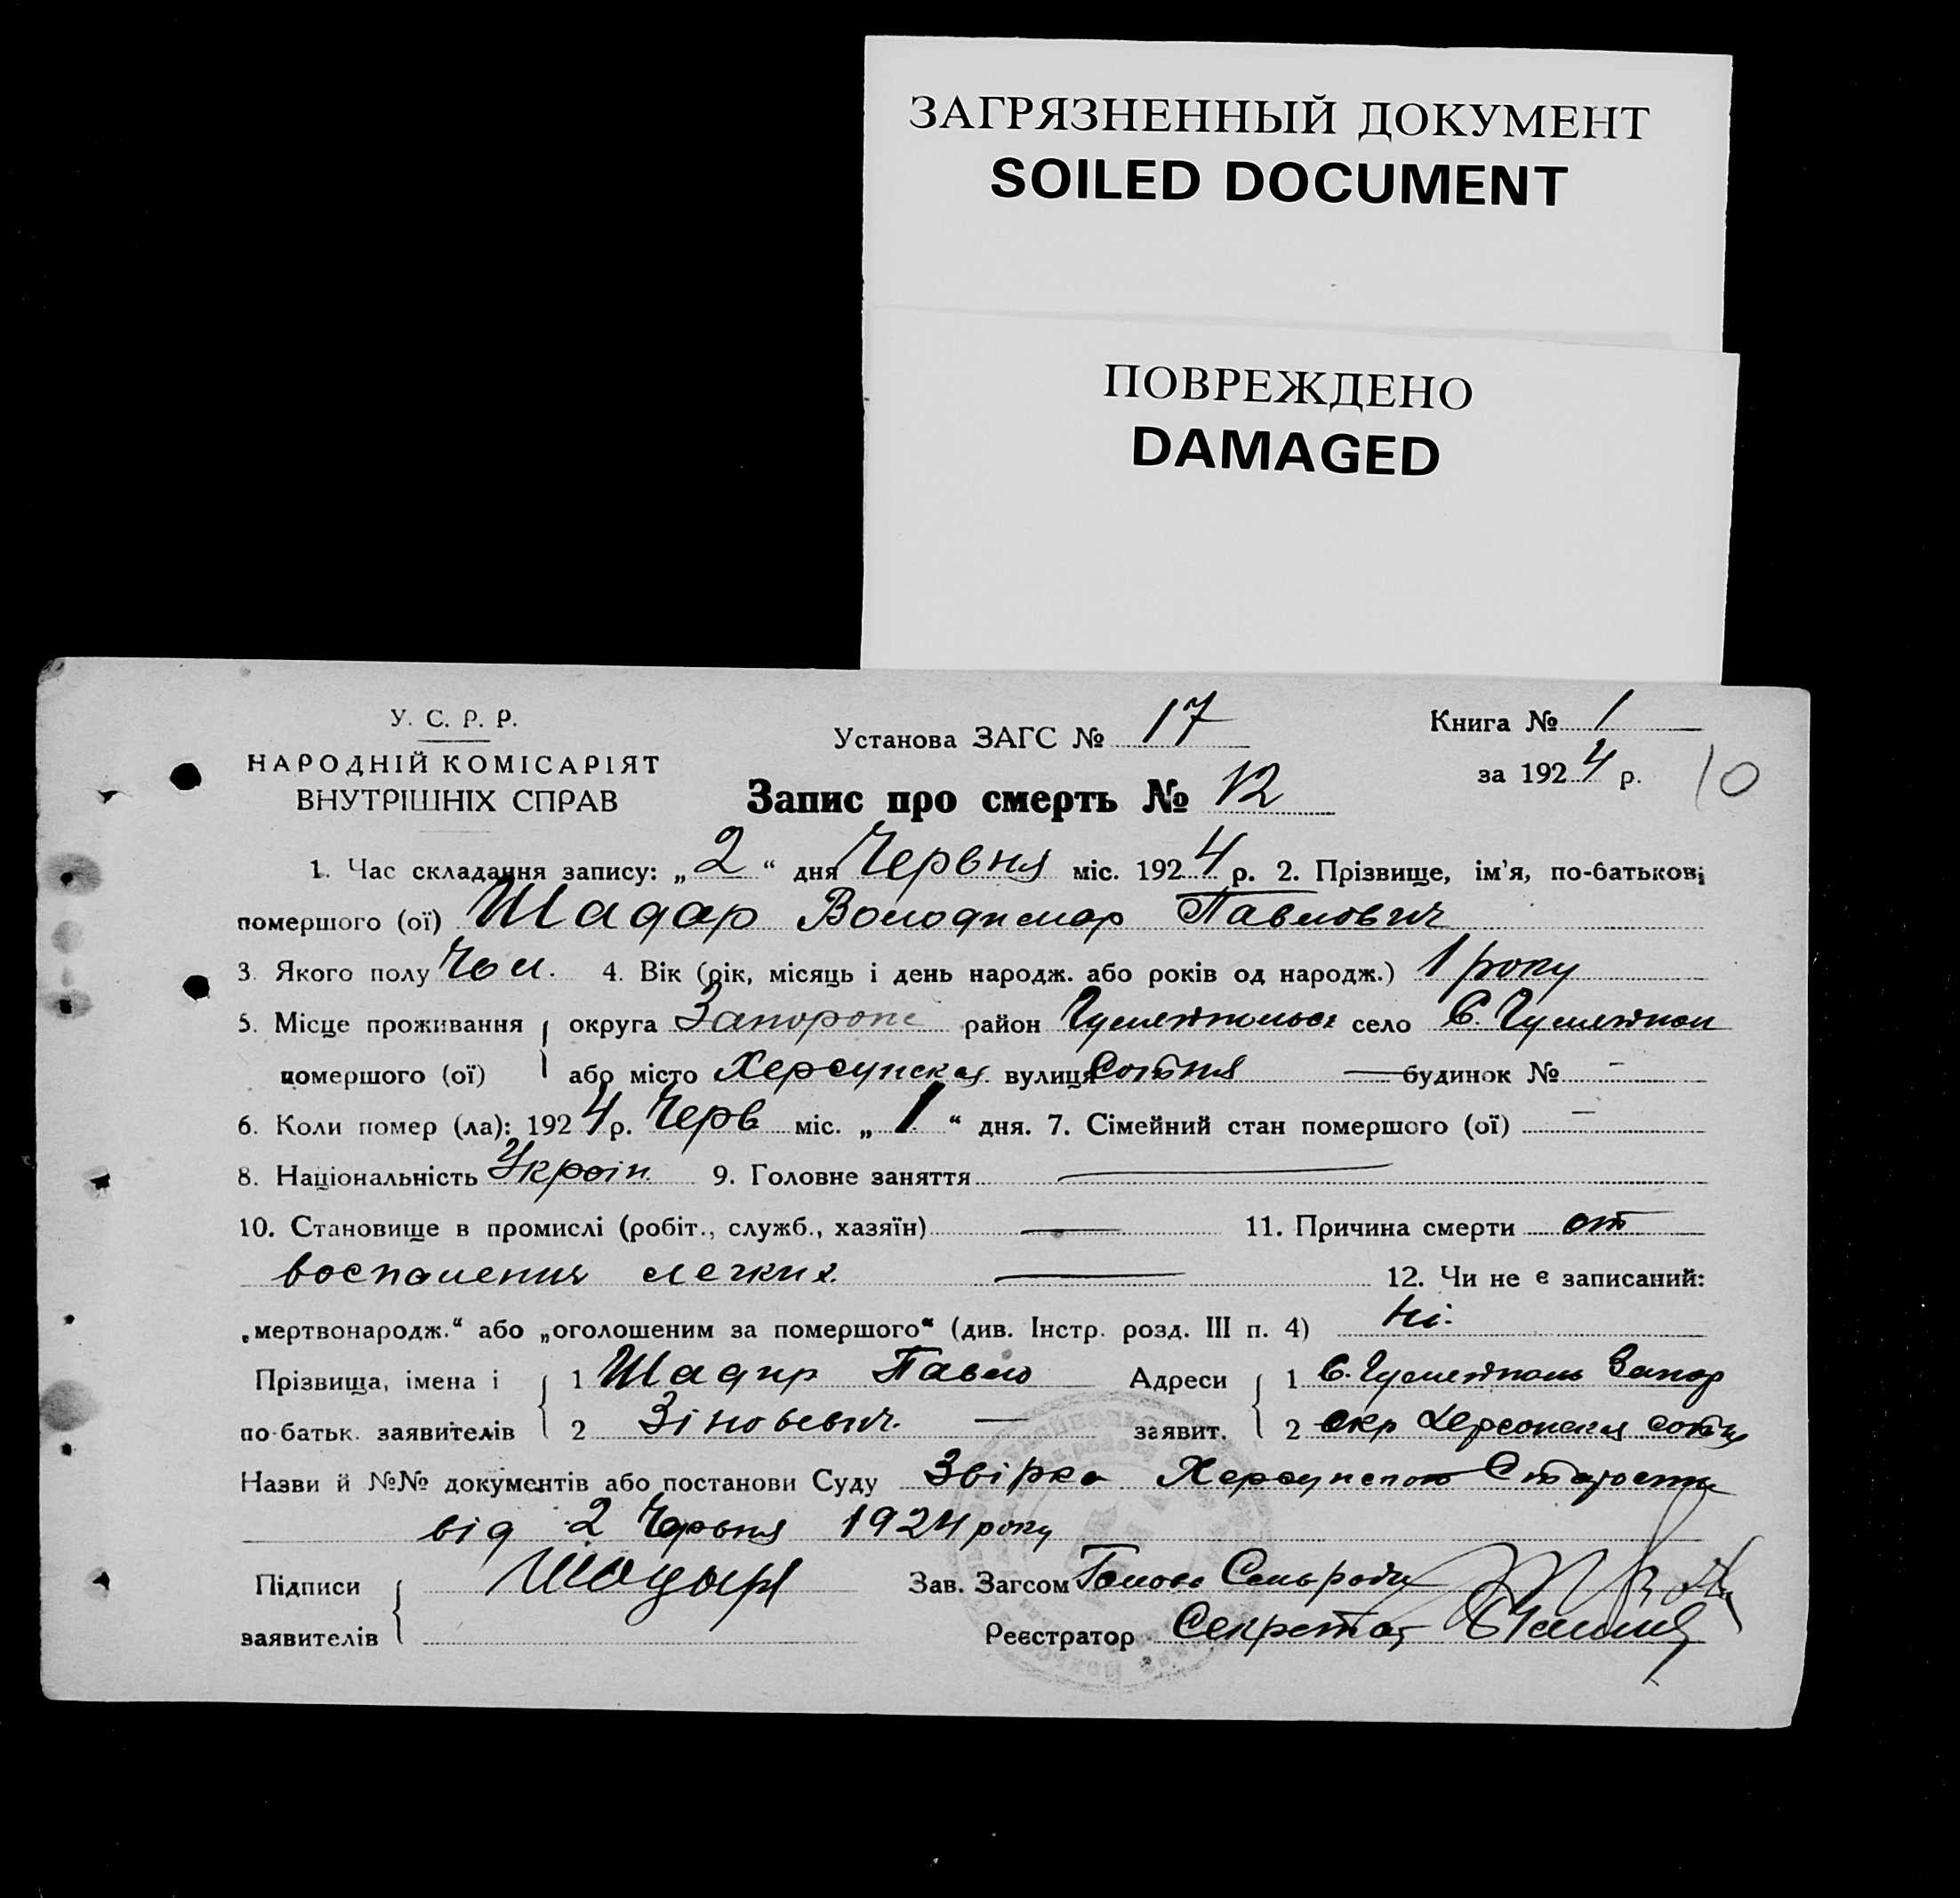 ЗАГРЯЗНЕННЫЙ ДОКУМЕНТ
SOILED DOCUMENT
ПОВРЕЖДЕНО
DAMAGED
У. С. Р. Р.
НАРОДНІЙ КОМІСАРІЯТ
ВНУТРІШНІХ СПРАВ
Установа ЗАГС № 17
Книга № 1
за 1924 р.
10
Запис про смерть № 12
1. Час складання запису: „2“ дня Червня міс. 1924 р. 2. Прізвище, ім'я, по-батькові
помершого (ої) Шадар Володимар Павлович
3. Якого полу Чол. 4. Вік (рік, місяць і день народж. або років од народж.) 1 року
5. Місце проживання округа Запорож район Гуляйпольск село С. Гуляйпол
помершого (ої) або місто Херсунская вулиця Сотня — будинок № -
6. Коли помер (ла): 1924 р. Черв міс. „1“ дня. 7. Сімейний стан помершого (ої) —
8. Національність Україн. 9. Головне заняття —
10. Становище в промислі (робіт., служб., хазяїн) — 11. Причина смерти от
воспаления легких. — 12. Чи не є записаний:
„мертвонародж.“ або „оголошеним за помершого“ (див. Інстр. розд. III п. 4) Ні.
Прізвища, імена і 1 Шадир Павло Адреси 1 С. Гуляйполь Запор
по-батьк. заявителів 2 Зіновьевич. — заявит. 2 окр Херсонская сотня
Назви й №№ документів або постанови Суду Звірка Херсунскою Старости
від 2 Червня 1924 року
Підписи Шадыря Зав. Загсом Голова Сельради
заявителів Реєстратор Секретар